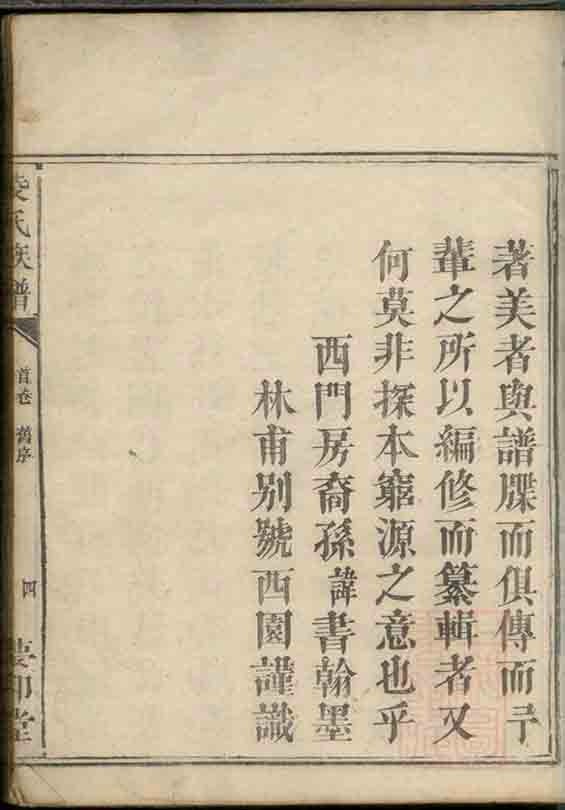 著美者與譜牒而俱傳而予
輩之所以編修而纂輯者又
何莫非探本窮源之意也乎
西門房裔孫諱書翰墨
林甫別號西園謹識
氏族譜
首卷 舊序
四
堂